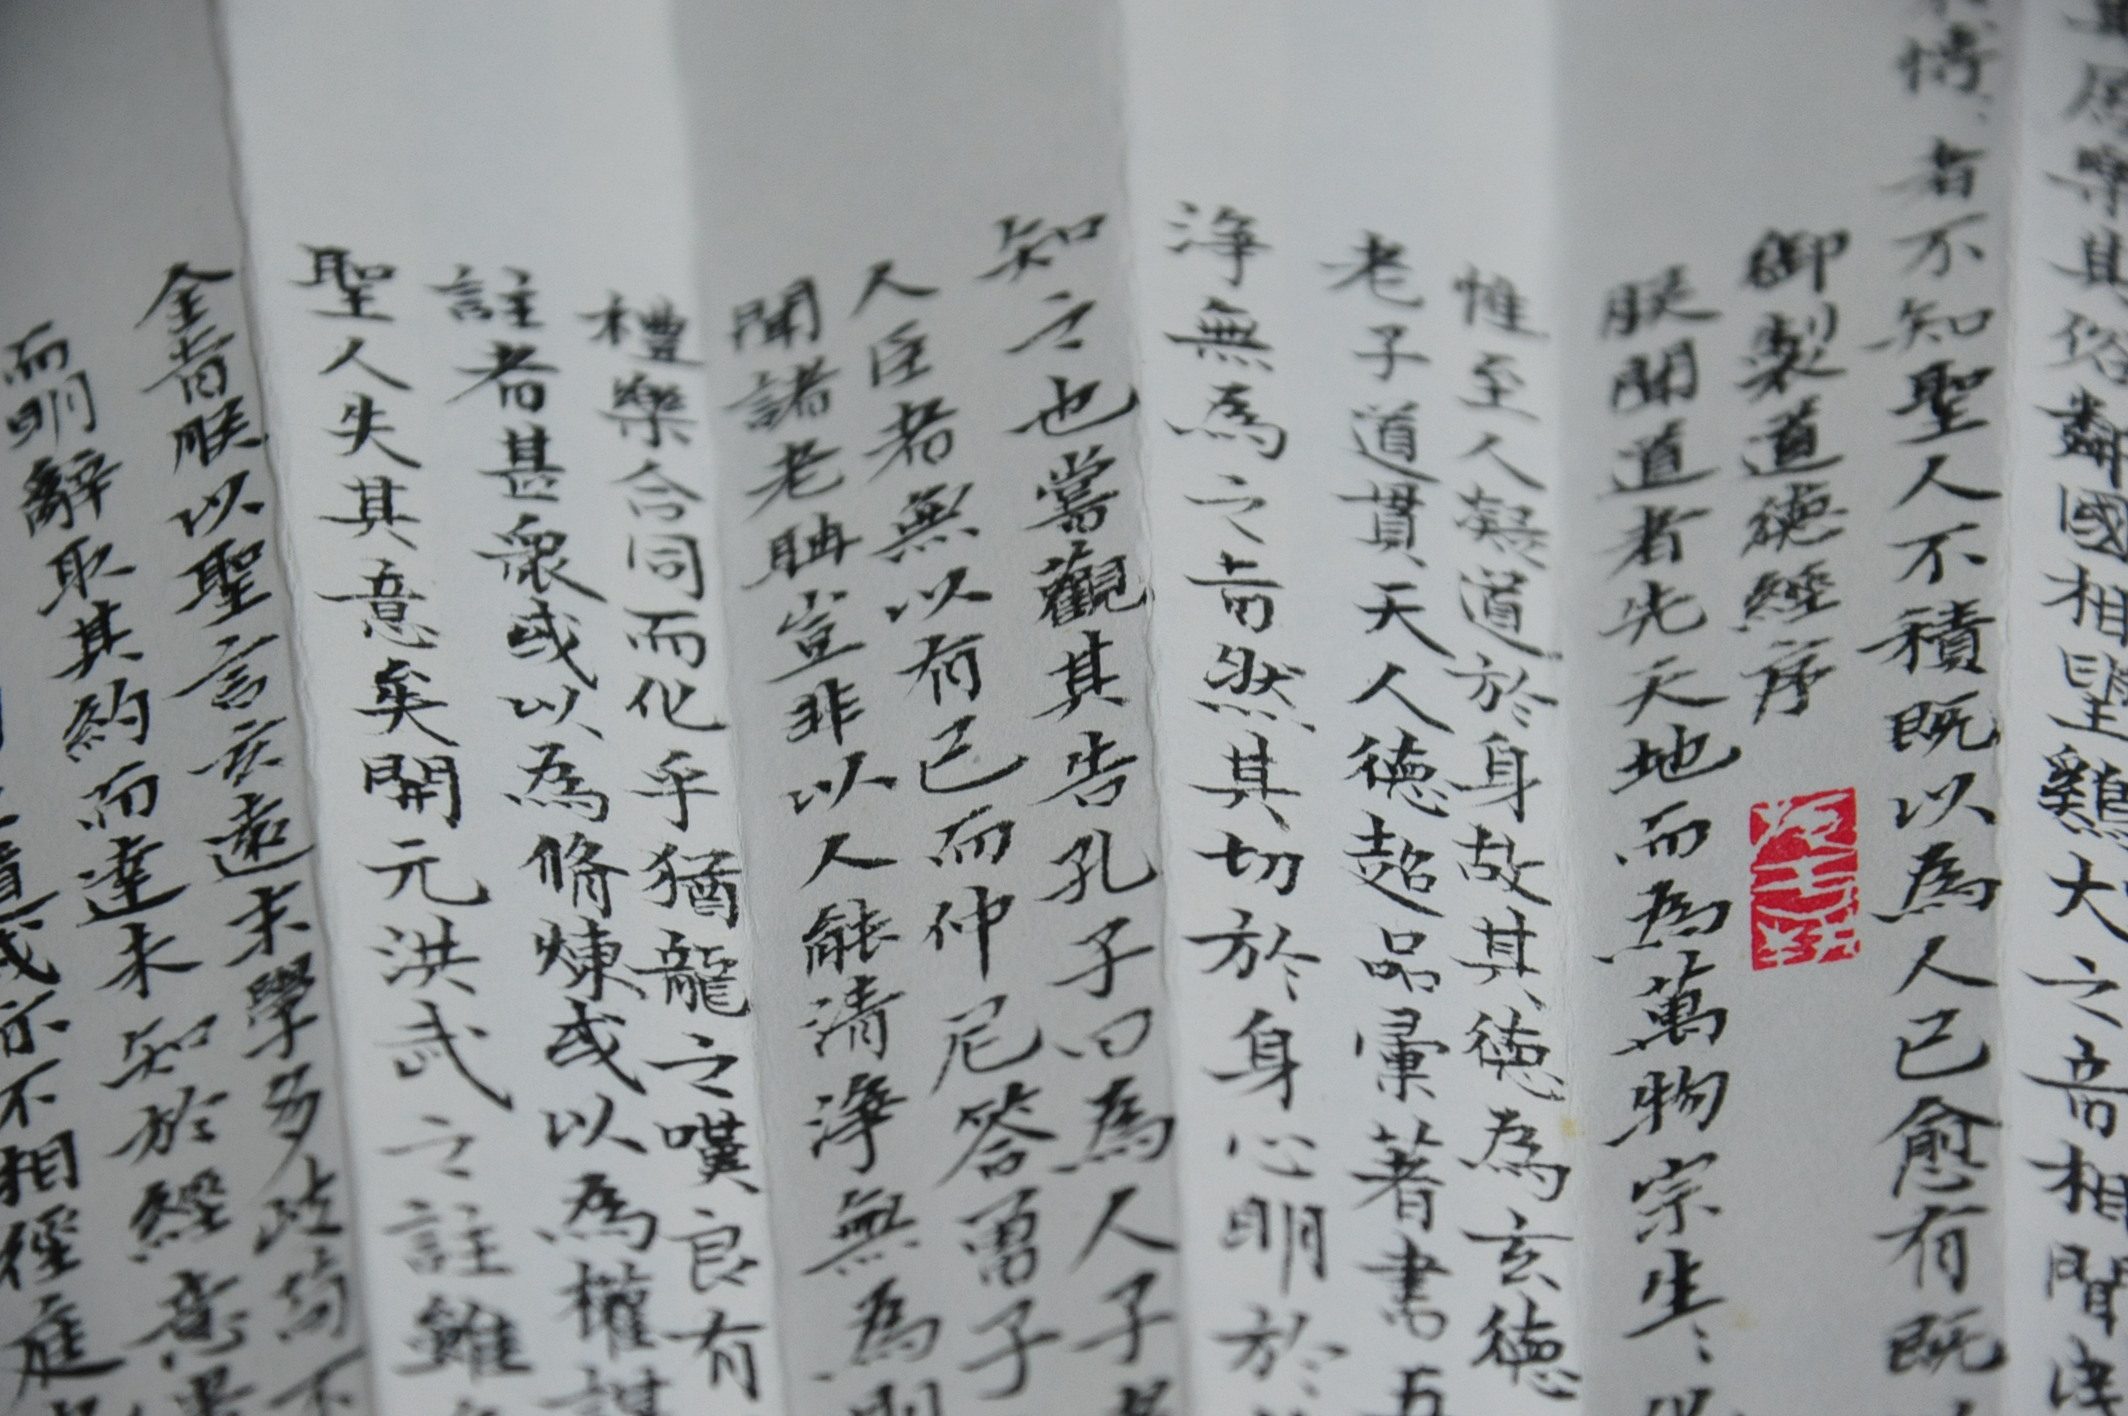 為樂其俗鄰國相望鷄犬之音相聞民
情者不知聖人不積既以為人己愈有既
御製道德經序
朕聞道者先天地而為萬物宗生
惟至人凝道於身故其德為玄德
老子道貫天人德超品彙著書五
淨無為之旨然其切於身心明於
知之也嘗觀其告孔子曰為人子
人臣者無以有己而仲尼答曾子
聞諸老聃豈非以人能清淨無為
禮樂合同而化乎猶龍之嘆良有
註者甚衆或以為脩煉或以為權謀
聖人失其意矣開元洪武之註雖
今昔朕以聖言玄遠末學多歧苟不
而明辭取其約而達未知於經意
或示不相徑庭